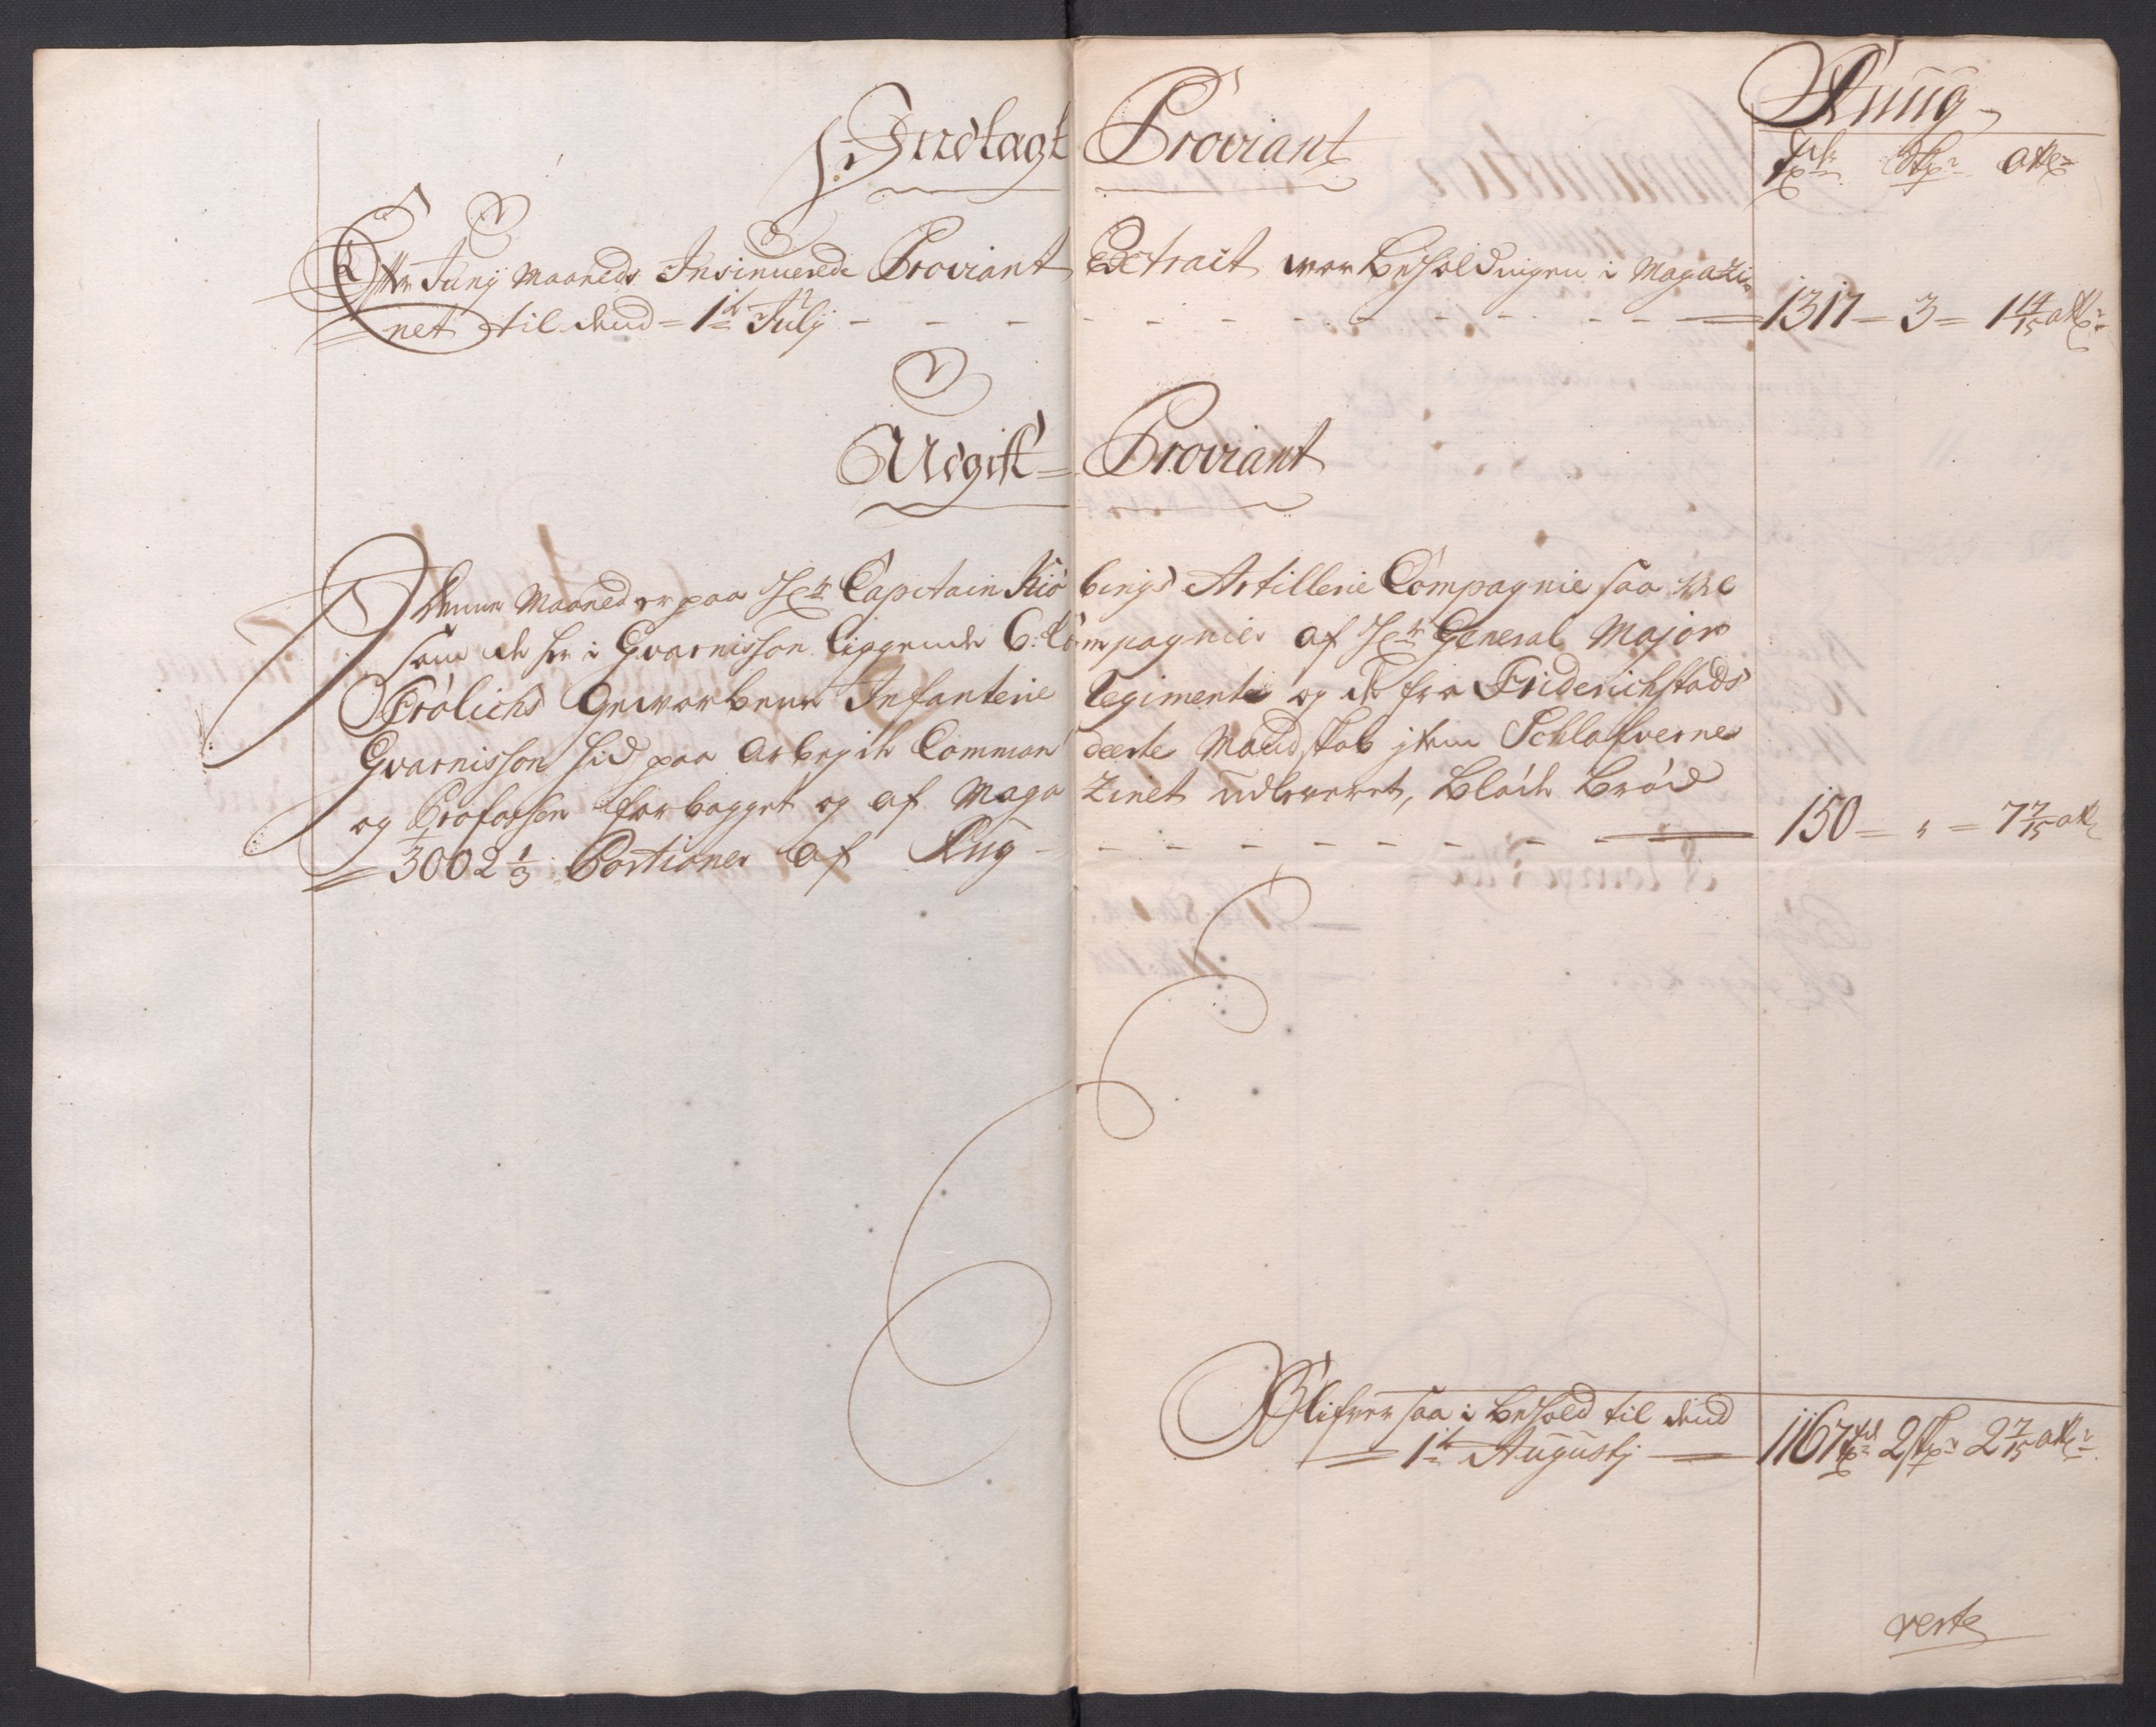 Rúúg
tdr. skpr. ottr.
Indtagt Proviant
Efter Junij Maaneds Insinuerede Proviant Extrait var beholdningen i Magazi-
net til dend 1te Julij - - - - - - - - 1317 - 3 - 1 14/15 ottr.
Udgift Proviant
Denne Maaned er paa Hr. Capitain Kiö bings Artillerie Compagnie saa vel
som de her i Gvarnisson liggende 6: Compagnier af Hr. General Major
Frölichs Gevorbene Infanterie Regimente og de fra Friderichstads
Gvarnisson hid paa Arbejde Comman deerte Mandskab jtem Schlafverne
og Profossen forbagget og af Maga zinet udleveret, Blöde Bröd
3002 1/3 Portioner af Rúg - - - - - - - - 150 - " - 7 7/15 ott
Blifver saa i behold til dend
1te Augustj 1167 tdr 2 skpr 2 7/15 ottr.
verte